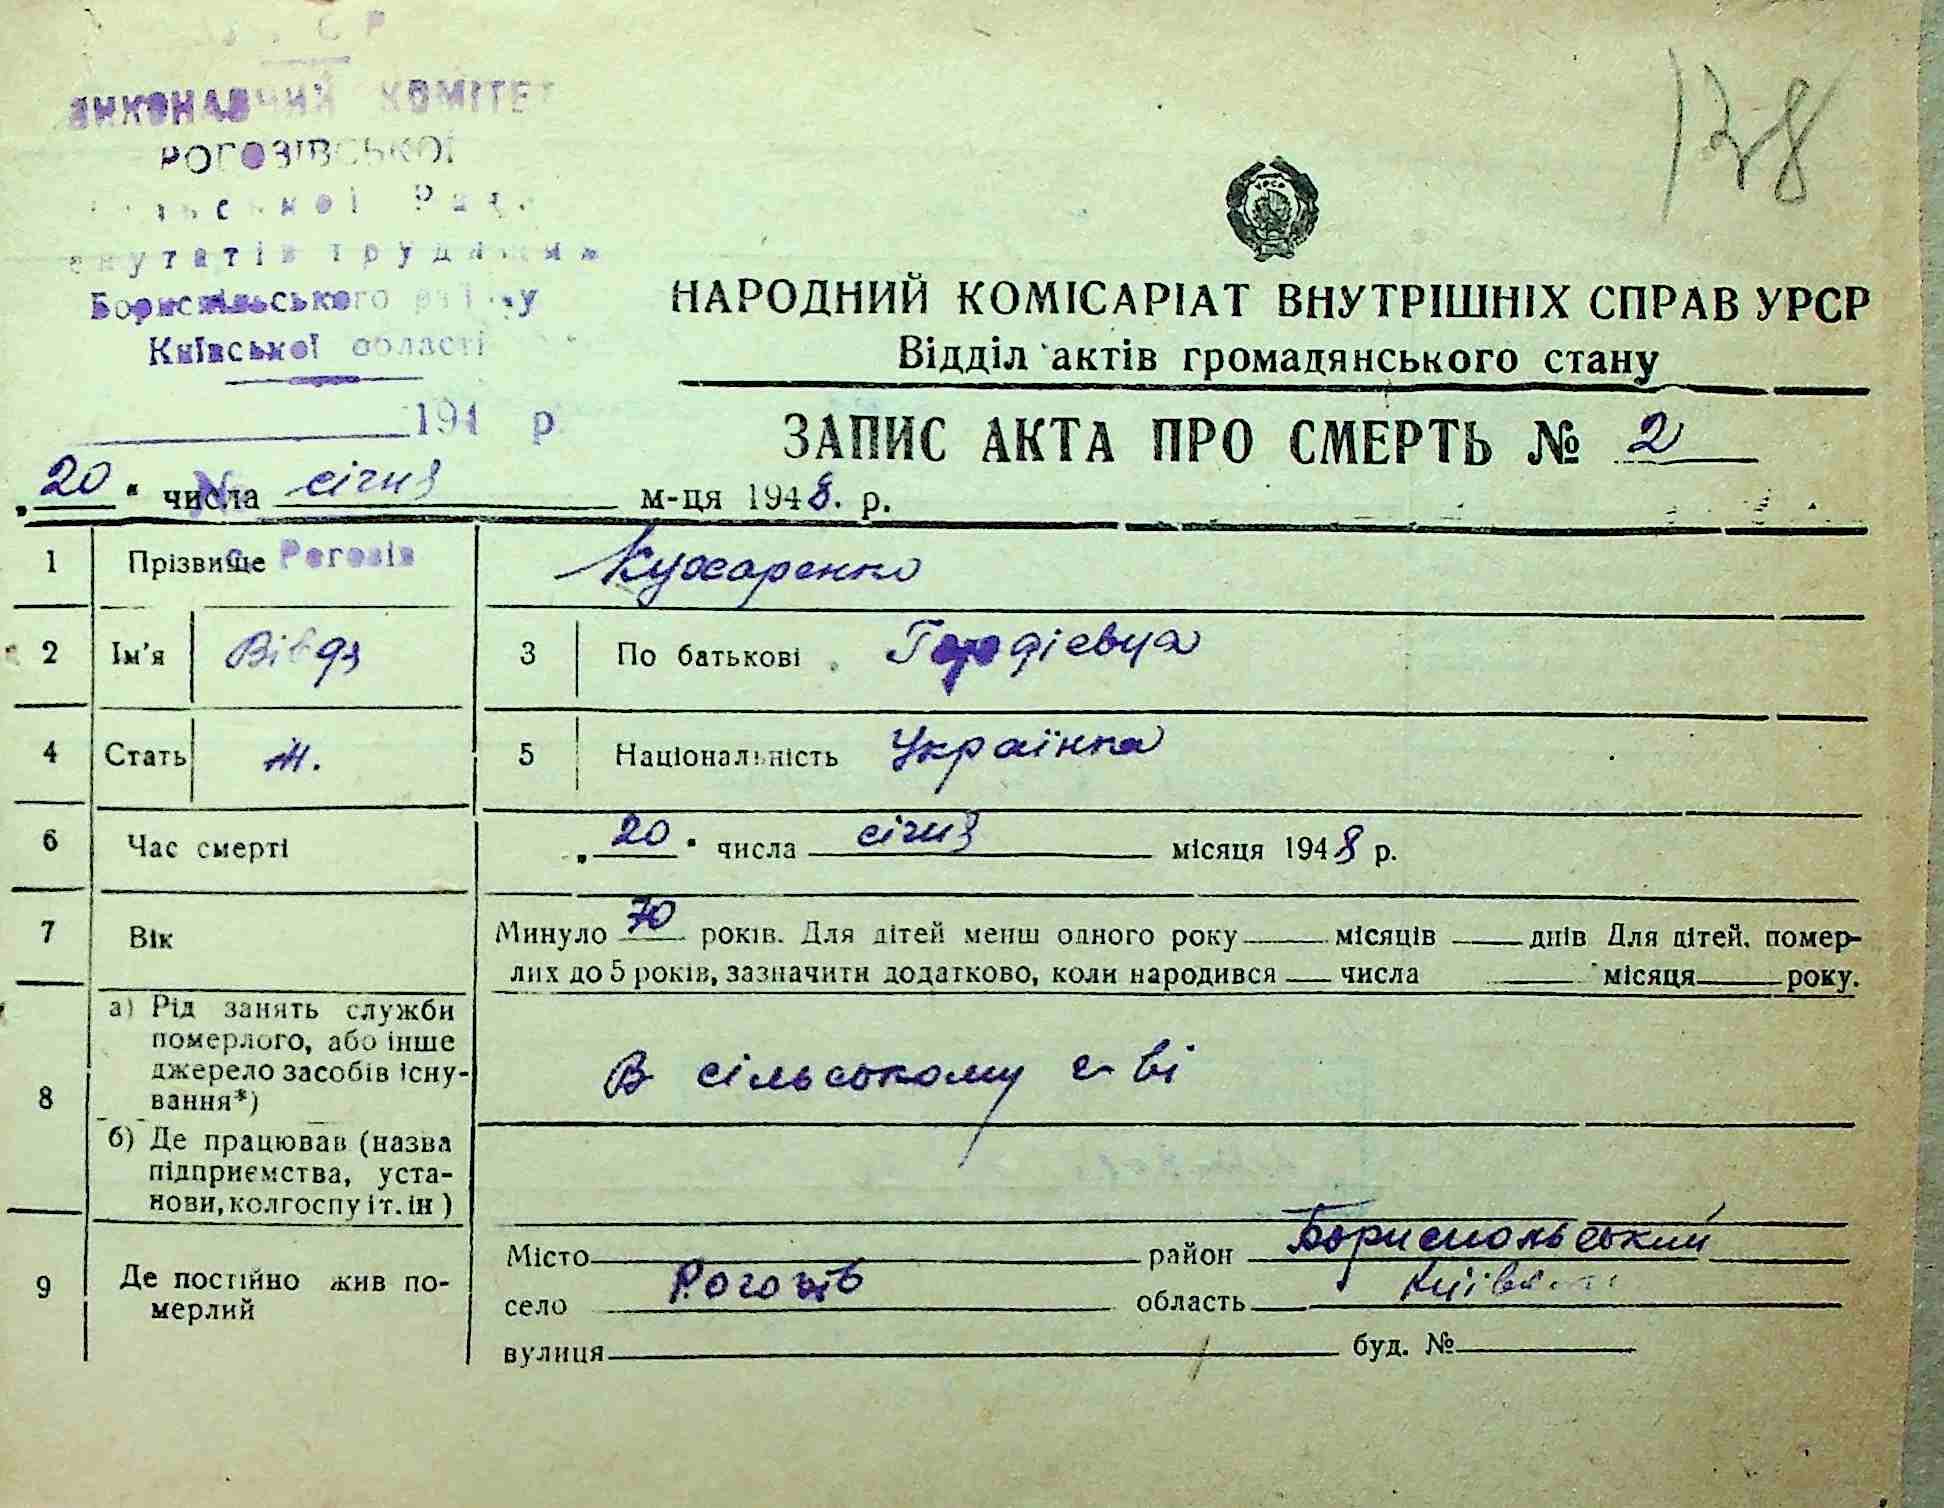 УРСР
ВИКОНАВЧИЙ КОМІТЕТ
РОГОЗІВСЬКОЇ
сільської Ради
депутатів трудящих
Бориспільського району
Київської області
194 р
№
с. Рогозів
128
УРСР
НАРОДНИЙ КОМІСАРІАТ ВНУТРІШНІХ СПРАВ УРСР
Відділ актів громадянського стану
ЗАПИС АКТА ПРО СМЕРТЬ № 2
„20“ числа січня м-ця 1948. р.
1 Прізвище Кухаренко
2 Ім'я Вівдя 3 По батькові Гордієвна
4 Стать ж. 5 Національність Українка
6 Час смерті „20“ числа січня місяця 1948 р.
7 Вік Минуло 70 років. Для дітей менш одного року місяців днів Для дітей, помер-
лих до 5 років, зазначити додатково, коли народився числа місяця року.
8 а) Рід занять служби
померлого, або інше
джерело засобів існу-
вання*)
В сільському г-ві
б) Де працював (назва
підприємства, уста-
нови, колгоспу і т. ін)
9 Де постійно жив по-
мерлий
Місто район Бориспольський
село Рогозів область Київська
вулиця буд. №